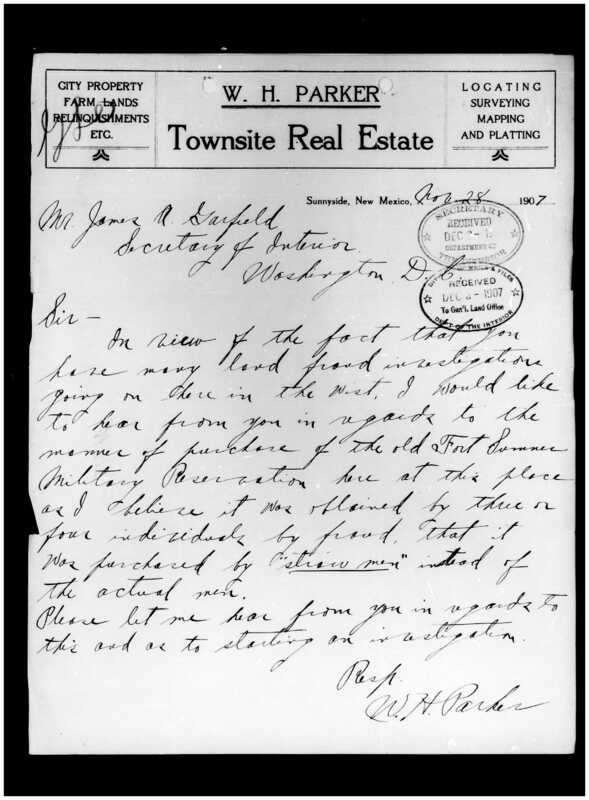 CITY PROPERTY
FARM LANDS
RELINQUISHMENTS
ETC.
W. H. PARKER
Townsite Real Estate
LOCATING
SURVEYING
MAPPING
AND PLATTING
Sunnyside, New Mexico, Nov. 28 1907
Mr. James A. Garfield
Secretary of Interior
Washington D.C.
SECRETARY
RECEIVED
DEC
DEPARTMENT OF
THE INTERIOR
& FILES
RECEIVED
DEC 3 - 1907
To Gen'l. Land Office
DEPT. OF THE INTERIOR
Sir —
In view of the fact that you
have many land fraud investigations
going on there in the West, I would like
to hear from you in regards to the
manner of purchase of the old Fort Sumner
Military Reservation here at this place
as I believe it was obtained by three or
four individuals by fraud, that it
was purchased by "straw men" instead of
the actual men.
Please let me hear from you in regards to
this and as to starting an investigation.
Resp.
W. H. Parker